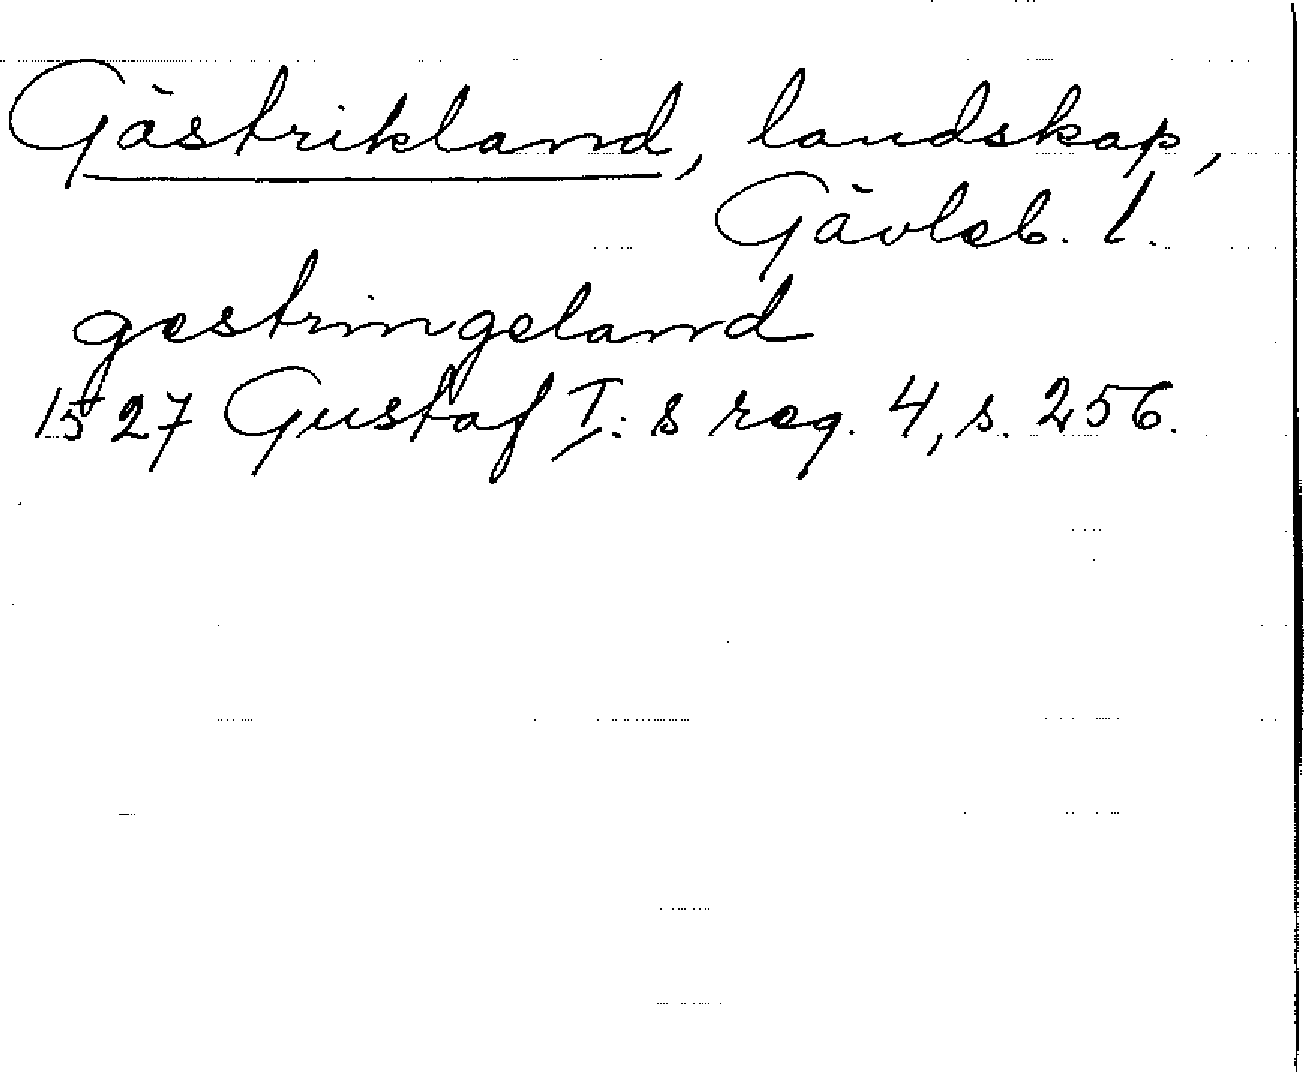 Gästrikland, landskap,
Gävleb. l.
gestringeland
1527 Gustaf I:s reg. 4, s. 256.